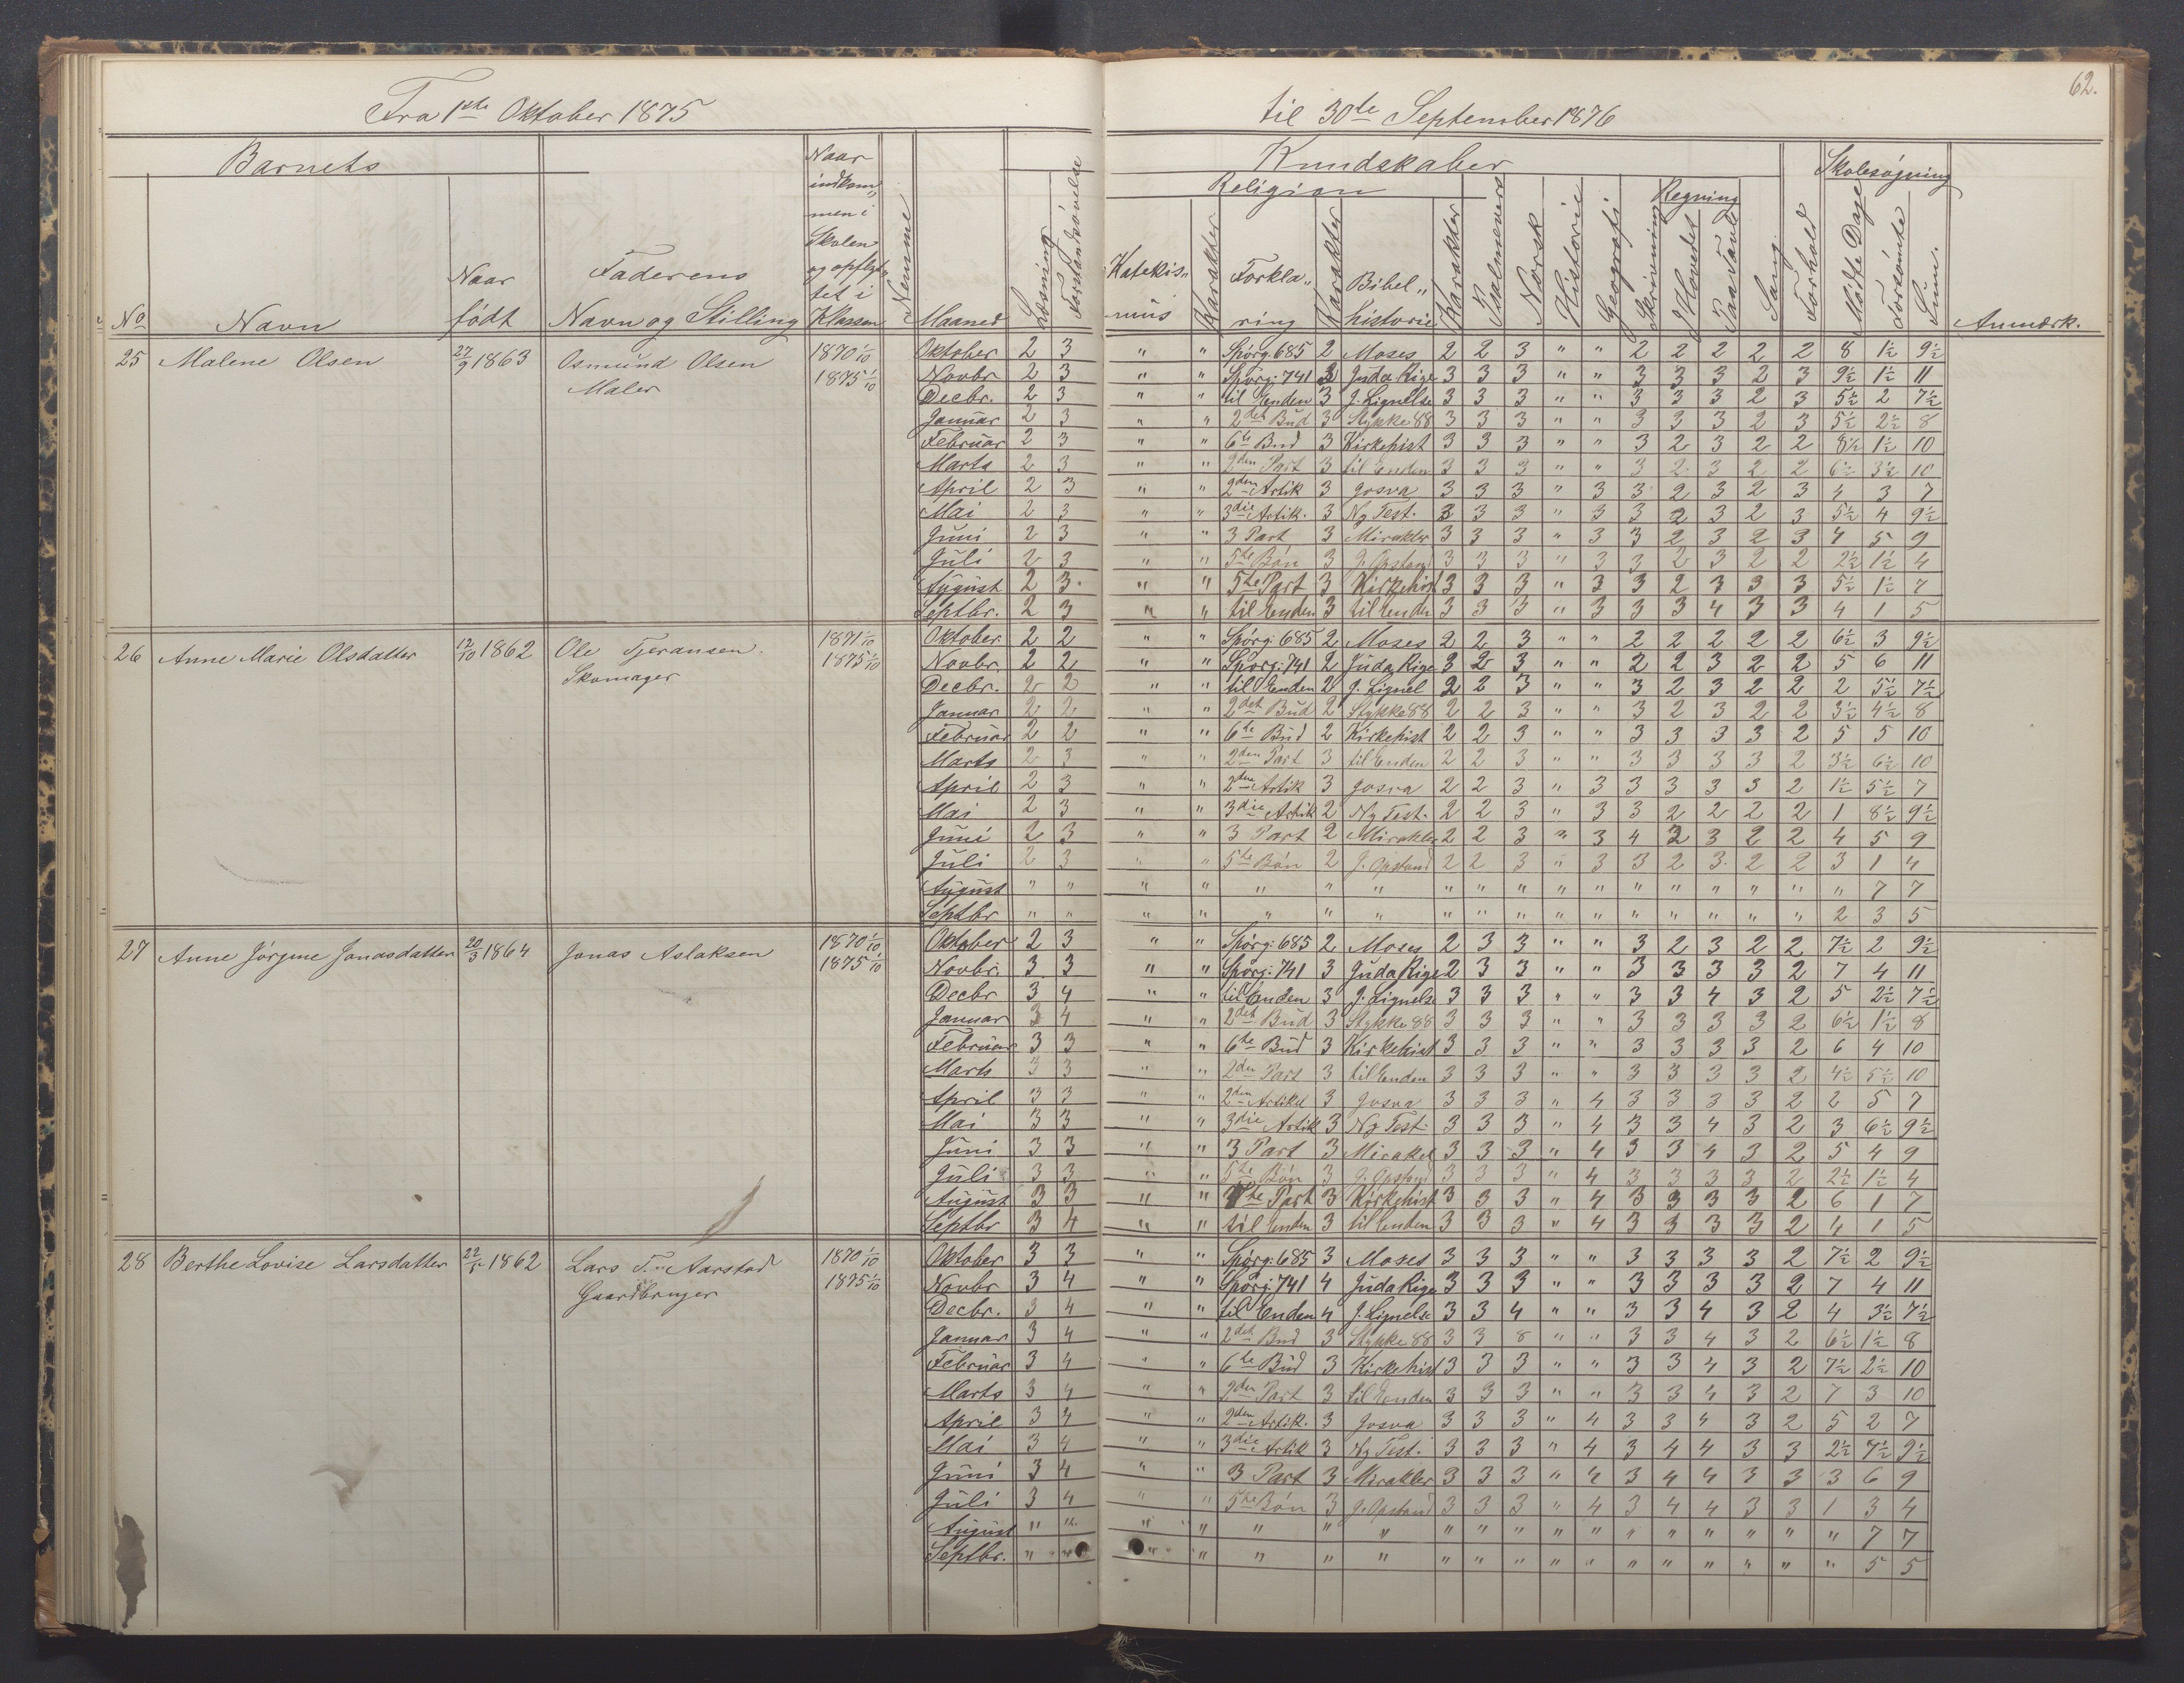 62.
Fra 1ste Oktober 1875 til 30te September 1876
Barnets Naar indkommen i Skolen og opflyttet i Klassen Kundskaber Skolesøgning
Religion Regning
No Navn Naar født Faderens Navn og Stilling Nemme Maaned Læsning Forstandsøvelse Katekis„mus Karakter Forkla„ring Karakter Bibel„historie Karakter Psalmevers Norsk Historie Geografi Skrivning I Hovedet Paa Tavle Sang Forhold Mødte Dage Forsømte Sum. Anmærk.
25 Malene Olsen 27/9 1863 Osmund Olsen 1870 1/10 Oktober 2 3 " " Spørg. 685 2 Moses 2 2 3 " " 2 2 2 2 2 8 1½ 9½
Maler 1875 1/10 Novbr 2 3 " " Spørg. 741 3 Juda Rige 3 3 3 " " 3 3 3 2 3 9½ 1½ 11
Decbr. 2 3 " " til Enden 3 J. Lignelse 3 3 3 " " 3 3 3 2 3 5½ 2 7½
Januar 2 3 " " 2det Bud 3 Stykke 88 3 3 3 " " 3 3 3 2 3 5½ 2½ 8
Februar 2 3 " " 6te Bud 3 Kirkehist 3 3 3 " " 3 2 3 2 2 8½ 1½ 10
Marts 2 3 " " 2den Part 3 til Enden 3 3 3 " " 3 2 3 2 2 6½ 3½ 10
April 2 3 " " 2den Artik 3 Josva 3 3 3 " 3 3 2 3 2 3 4 3 7
Mai 2 3 " " 3die Artik. 3 Ny Test. 3 3 3 " 3 3 2 3 2 3 5½ 4 9½
Juni 2 3 " " 3 Part 3 Mirakler 3 3 3 " 3 3 2 3 2 3 4 5 9
Juli 2 3 " " 5te Bøn 3 J. Opstand 3 3 3 " 3 3 2 3 2 2 2½ 1½ 4
August 2 3 " " 5te Part 3 Kirkehist 3 3 3 " 3 3 2 3 3 3 5½ 1½ 7
Septbr. 2 3 " " til Enden 3 til Enden 3 3 3 " 3 3 3 4 3 3 4 1 5
26 Anne Marie Olsdatter 12/10 1862 Ole Tjeransen. 1871 1/10 Oktober 2 2 " " Spørg. 685 2 Moses 2 2 3 " " 2 2 2 2 2 6½ 3 9½
Skomager 1875 1/10 Novbr 2 2 " " Spørg. 741 2 Juda Rige 3 2 3 " " 2 2 3 2 2 5 6 11
Decbr. 2 2 " " til Enden 2 J. Lignel 2 2 3 " " 3 2 3 2 2 2 5½ 7½
Januar 2 2 " " 2det Bud 2 Stykke 88 2 2 3 " " 3 2 3 2 2 3½ 4½ 8
Februar 2 2 " " 6te Bud 2 Kirkehist 2 2 3 " " 3 3 3 3 2 5 5 10
Marts 2 3 " " 2den Part 3 til Enden 2 2 3 " " 3 3 3 3 2 3½ 6½ 10
April 2 3 " " 2den Artik 3 Josva 2 2 3 " 3 3 3 3 3 2 1½ 5½ 7
Mai 2 3 " " 3die Artik 2 Ny Test. 2 2 3 " 3 3 2 2 2 2 1 8½ 9½
Juni 2 3 " " 3 Part 2 Mirakler 2 2 3 " 3 4 2 3 2 2 4 5 9
Juli 2 3 " " 5te Bøn 2 J. Opstand 2 2 3 " 3 3 2 3 2 2 3 1 4
August " " " " " " " " " " " " " " " " " " " 7 7
Septbr " " " " " " " " " " " " " " " " " " 2 3 5
27 Anne Jørgine Jonasdatter 20/3 1864 Jonas Aslaksen 1870 1/10 Oktober 2 3 " " Spørg. 685 2 Moses 2 3 3 " " 3 2 3 2 2 7½ 2 9½
1875 1/10 Novbr. 3 3 " " Spørg. 741 3 Juda Rige 2 3 3 " " 3 3 3 3 2 7 4 11
Decbr 3 4 " " til Enden 3 J. Lignelse 3 3 3 " " 3 3 4 3 2 5 2½ 7½
Januar 3 4 " " 2det Bud 3 Stykke 88 3 3 3 " " 3 3 3 3 2 6½ 1½ 8
Februar 3 3 " " 6te Bud 3 Kirkehist 3 3 3 " " 3 3 3 3 2 6 4 10
Marts 3 3 " " 2den Part 3 til Enden 3 3 3 " " 3 3 3 3 2 4½ 5½ 10
April 3 3 " " 2den Artikel 3 Josva 3 3 3 " 4 3 3 3 3 2 2 5 7
Mai 3 3 " " 3die Artik 3 Ny Test. 3 3 3 " 4 3 3 4 3 2 3 6½ 9½
Juni 3 3 " " 3 Part 3 Mirakel 3 3 3 " 4 3 3 4 3 2 5 4 9
Juli 3 3 " " 5te Bøn 3 J. Opstand 3 3 3 " 4 3 3 3 3 2 2½ 1½ 4
August 3 3 " " 5te Part 3 Kirkehist 3 3 3 " 4 3 3 3 3 2 6 1 7
Septbr 3 4 " " til Enden 3 til Enden 3 3 3 " 4 3 3 3 3 2 4 1 5
28 Berthe Lovise Larsdatter 1862 Lars T. Aarstad 1870 1/10 Oktober 3 3 " " Spørg. 685 3 Moses 3 3 3 " " 3 3 3 3 2 7½ 2 9½
Gaardbruger 1875 1/10 Novbr 3 4 " " Spørg. 741 4 Juda Rige 3 3 3 " " 3 3 3 3 2 7 4 11
Decbr. 3 4 " " til Enden 4 J. Lignelse 3 3 4 " " 3 3 4 3 2 4 3½ 7½
Januar 3 4 " " 2det Bud 3 Stykke 88 3 3 3 " " 3 3 4 3 2 6½ 1½ 8
Februar 3 4 " " 6te Bud 3 Kirkehist 3 3 3 " " 3 3 4 3 2 7½ 2½ 10
Marts 3 4 " " 2den Part 3 til Enden 3 3 3 " " 3 3 4 3 2 7 3 10
April 3 4 " " 2den Artik. 3 Josva 3 3 3 " 4 3 3 4 3 2 5 2 7
Mai 3 4 " " 3die Artik 3 Ny Test. 3 3 3 " 4 3 4 4 3 3 2½ 7½ 9½
Juni 3 4 " " 3 Part 3 Mirakler 3 3 3 " 4 3 4 4 3 3 3 6 9
Juli 3 4 " " 5te Bøn 3 J. Opstand 3 3 3 " 4 3 4 4 3 3 1 3 4
August " " " " " " " " " " " " " " " " " " " 7 7
Septbr. " " " " " " " " " " " " " " " " " " " 5 5